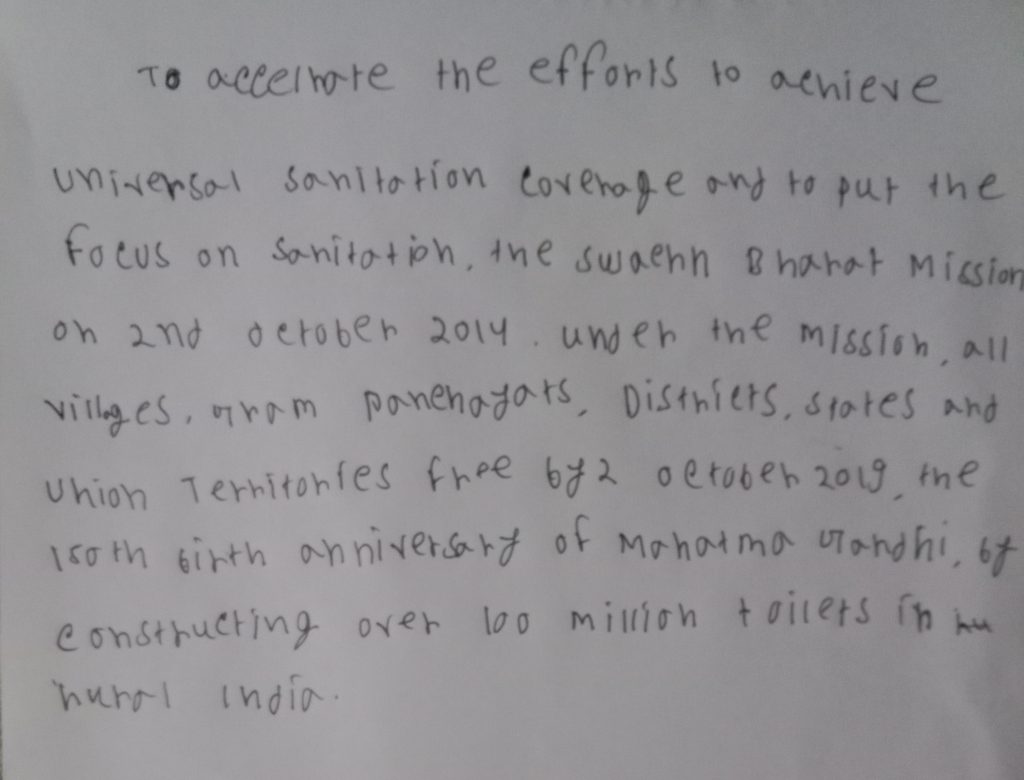 To accelrate the efforts to achieve
universal sanitation coverage and to put the
focus on sanitation, the swachh Bharat Mission
on 2nd october 2014. under the mission, all
villages, gram panchayats, Districts, states and
Union Territories free by 2 october 2019, the
150th birth anniversary of Mahatma Gandhi, by
constructing over 100 million toilets in
rural india.